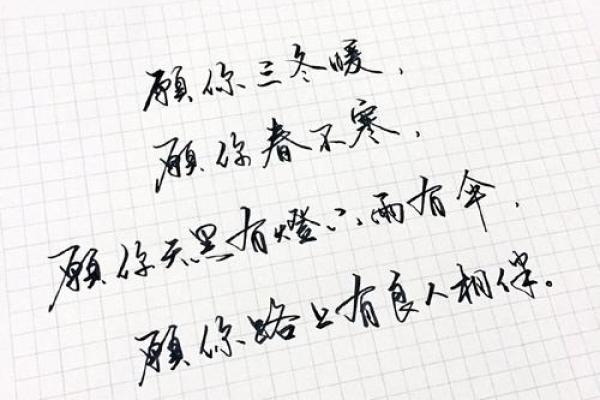 願你三冬暖，
願你春不寒，
願你天黑有燈下雨有伞，
願你路上有良人相伴。